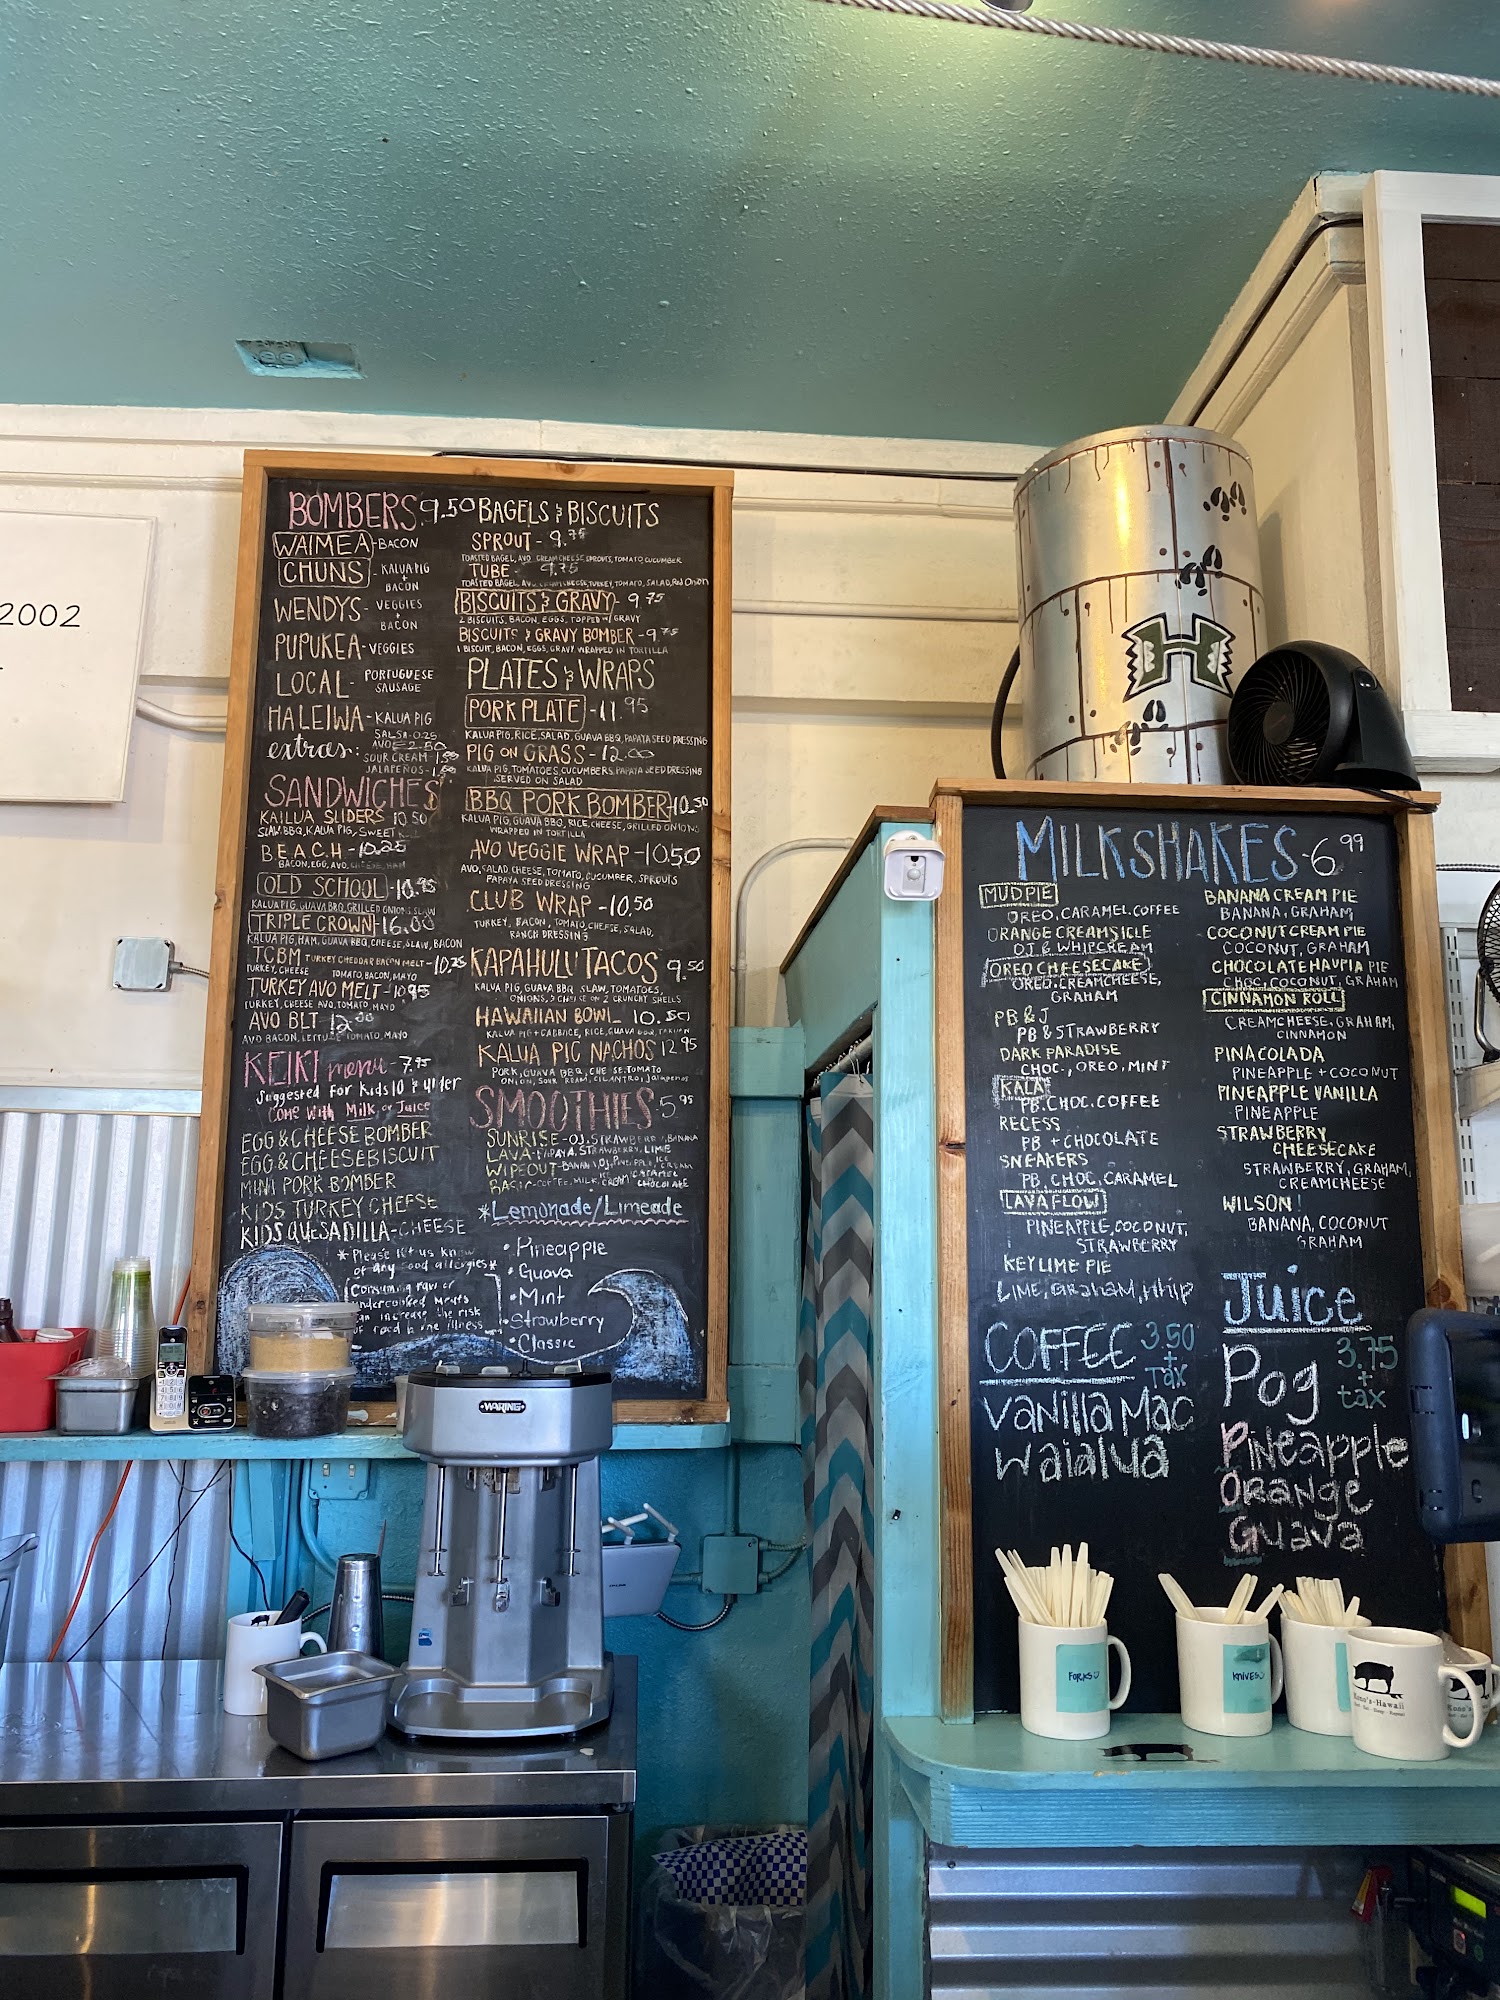 2002
BOMBERS 9.50
WAIMEA - BACON
CHUNS - KALUA PIG
+
BACON
WENDYS - VEGGIES
+
BACON
PUPUKEA - VEGGIES
LOCAL - PORTUGUESE
SAUSAGE
HALEIWA - KALUA PIG
extras: SALSA-0.25
AVO 2.50
SOUR CREAM - 1.50
JALAPEÑOS - 1.50
SANDWICHES
KAILUA SLIDERS 10.50
SLAW, BBQ, KALUA PIG, SWEET
B.E.A.C.H - 10.25
BACON, EGG, AVO, CHEESE, HAM
OLD SCHOOL - 10.95
KALUA PIG, GUAVA BBQ, GRILLED ONIONS, SLAW
TRIPLE CROWN - 16.00
KALUA PIG, HAM, GUAVA BBQ, CHEESE, SLAW, BACON
TCBM TURKEY CHEDDAR BACON MELT - 10.25
TURKEY, CHEESE TOMATO, BACON, MAYO
TURKEY AVO MELT - 10.95
TURKEY, CHEESE AVO, TOMATO, MAYO
AVO BLT 12.00
AVO BACON, LETTUCE TOMATO, MAYO
KEIKI menu - 7.95
Suggested for Kids 10 & under
Come with Milk or Juice
EGG & CHEESE BOMBER
EGG & CHEESE BISCUIT
MINI PORK BOMBER
KIDS TURKEY CHEESE
KIDS QUESADILLA - CHEESE
*Please let us know
of any food allergies*
Consuming raw or
undercooked meats
can increase the risk
of food borne illness.
BAGELS & BISCUITS
SPROUT - 9.75
TOASTED BAGEL, AVO CREAM CHEESE, SPROUTS, TOMATO, CUCUMBER
TUBE - 9.75
TOASTED BAGEL, AVO, CREAM CHEESE, TURKEY, TOMATO, SALAD, Red Onion
BISCUITS & GRAVY - 9.75
2 BISCUITS, BACON, EGGS, TOPPED W/ GRAVY
BISCUITS & GRAVY BOMBER - 9.75
1 BISCUIT, BACON, EGGS, GRAVY WRAPPED IN TORTILLA
PLATES & WRAPS
PORK PLATE - 11.95
KALUA PIG, RICE, SALAD, GUAVA BBQ, PAPAYA SEED DRESSING
PIG ON GRASS - 12.00
KALUA PIG, TOMATOES, CUCUMBERS, PAPAYA SEED DRESSING
SERVED ON SALAD
BBQ PORK BOMBER 10.50
KALUA PIG, GUAVA BBQ, RICE, CHEESE, GRILLED ONIONS
WRAPPED IN TORTILLA
AVO VEGGIE WRAP - 10.50
AVO, SALAD, CHEESE, TOMATO, CUCUMBER, SPROUTS
PAPAYA SEED DRESSING
CLUB WRAP - 10.50
TURKEY, BACON, TOMATO, CHEESE, SALAD,
RANCH DRESSING
KAPAHULU TACOS 9.50
KALUA PIG, GUAVA BBQ SLAW, TOMATOES,
ONIONS, CHEESE ON 2 CRUNCHY SHELLS
HAWAIIAN BOWL 10.50
KALUA PIG + CABBAGE, RICE, GUAVA BBQ,
KALUA PIG NACHOS 12.95
PORK, GUAVA BBQ, CHEESE, TOMATO
ONION, SOUR CREAM, CILANTRO, Jalapenos
SMOOTHIES 5.95
SUNRISE - OJ, STRAWBERRY, BANANA
LAVA - PAPAYA, STRAWBERRY, LIME
WIPEOUT - BANANA, OJ, PINEAPPLE, ICE CREAM
BASIC - COFFEE, MILK, ICE CREAM, CARAMEL CHOCOLATE
*Lemonade/Limeade
• Pineapple
• Guava
• Mint
• Strawberry
• Classic
WARING
H
MILKSHAKES - 6.99
MUDPIE
OREO, CARAMEL, COFFEE
ORANGE CREAMSICLE
OJ & WHIPCREAM
OREO CHEESECAKE
OREO, CREAMCHEESE,
GRAHAM
PB & J
PB & STRAWBERRY
DARK PARADISE
CHOC., OREO, MINT
KALA
PB. CHOC. COFFEE
RECESS
PB + CHOCOLATE
SNEAKERS
PB, CHOC, CARAMEL
LAVA FLOW
PINEAPPLE, COCONUT,
STRAWBERRY
KEY LIME PIE
LIME, GRAHAM, WHIP
COFFEE 3.50
+
TAX
Vanilla Mac
Waialua
BANANA CREAM PIE
BANANA, GRAHAM
COCONUT CREAM PIE
COCONUT, GRAHAM
CHOCOLATE HAUPIA PIE
CHOC, COCONUT, GRAHAM
CINNAMON ROLL
CREAMCHEESE, GRAHAM,
CINNAMON
PINACOLADA
PINEAPPLE + COCONUT
PINEAPPLE VANILLA
PINEAPPLE
STRAWBERRY
CHEESECAKE
STRAWBERRY, GRAHAM,
CREAMCHEESE
WILSON!
BANANA, COCONUT
GRAHAM
Juice
Pog 3.75
+
tax
Pineapple
Orange
Guava
FORKS
KNIVES
Kono's-Hawaii